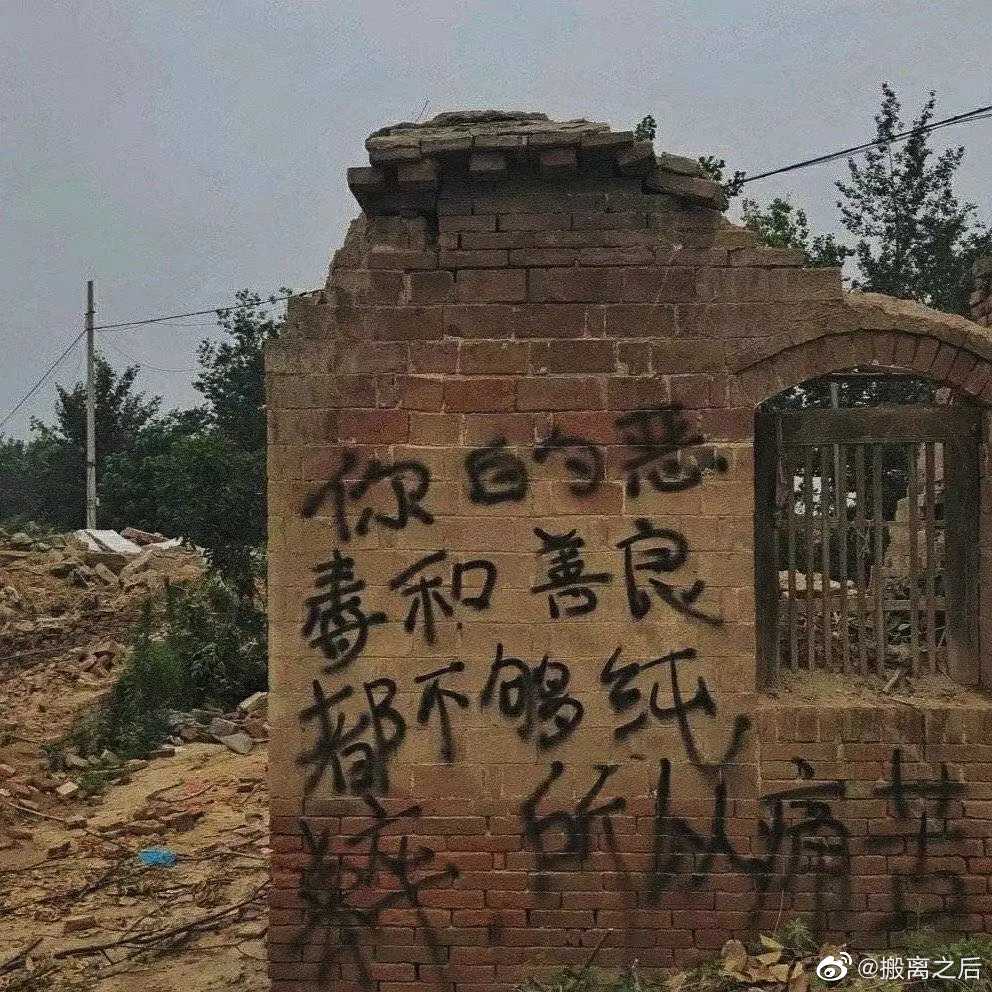 你的恶
毒和善良
都不够纯
粹 所以痛苦
@搬离之后